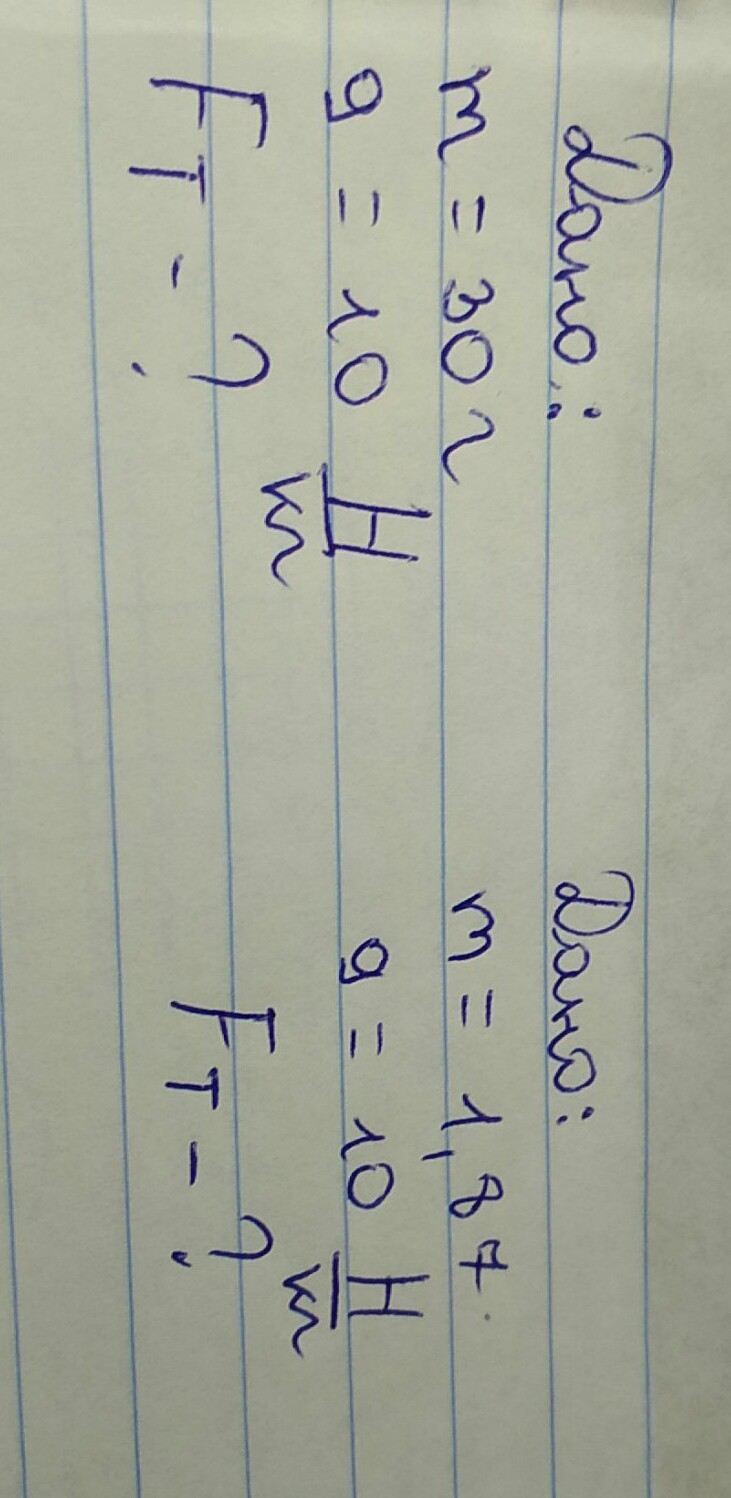 Дано:
m = 30 г
g = 10 Н/кг
Fт - ?
Дано:
m = 1,87.
g = 10 Н/кг
Fт - ?